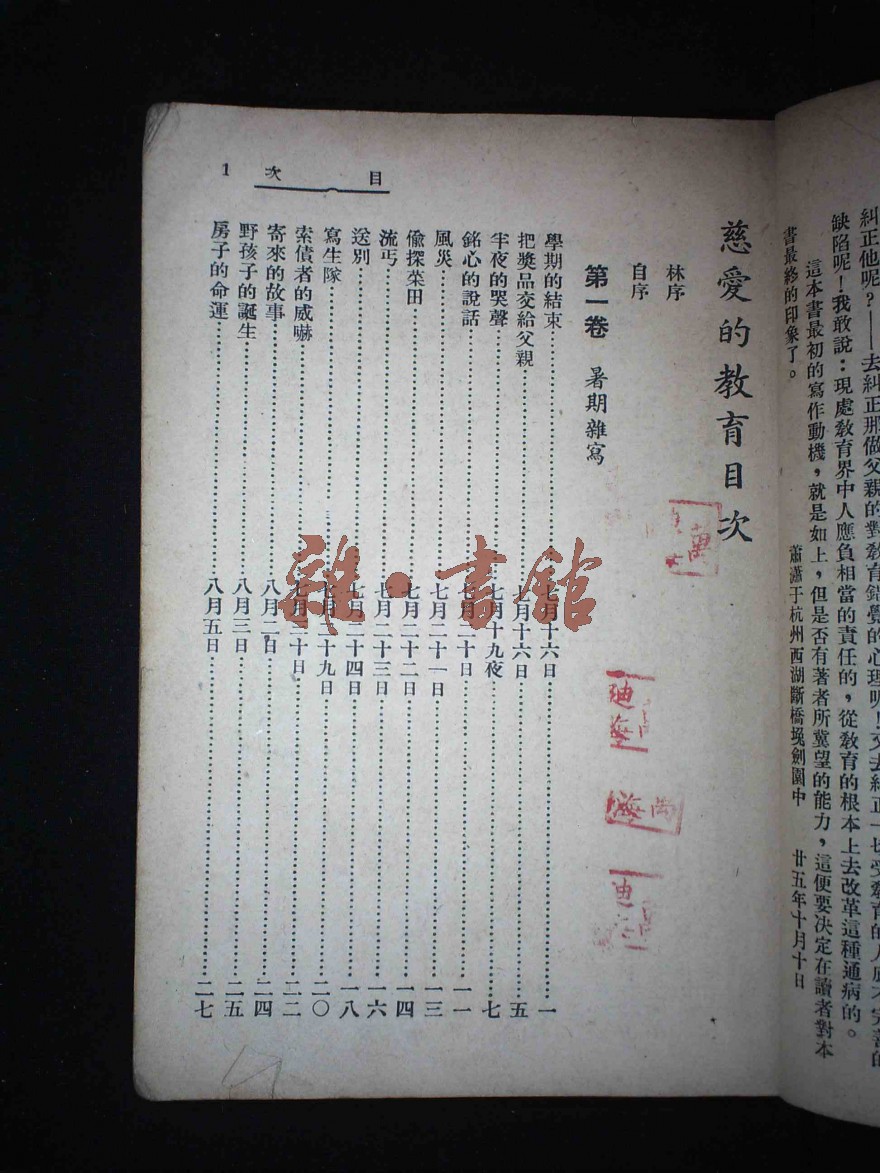 糾正他呢？——去糾正那做父親的對教育錯覺的心理呢！又去糾正一切受教育的人底不完善的
缺陷呢！我敢說：現處教育界中人應負相當的責任的，從教育的根本上去改革這種通病的。
這本書最初的寫作動機，就是如上，但是否有著者所冀望的能力，這便要決定在讀者對本
書最終的印象了。
蕭瀟于杭州西湖斷橋堍劍園中 廿五年十月十日
目次 1
慈愛的教育目次
林序
自序
第一卷 暑期雜寫
學期的結束……七月十六日……一
把獎品交給父親……七月十六日……五
半夜的哭聲……七月十九夜……七
銘心的說話……七月二十日……一一
風災……七月二十一日……一三
偷探菜田……七月二十二日……一四
流丐……七月二十三日……一六
送別……七月二十四日……一八
寫生隊……七月二十九日……二〇
索債者的威嚇……七月三十日……二二
寄來的故事……八月二日……二四
野孩子的誕生……八月三日……二五
房子的命運……八月五日……二七
雜·書館